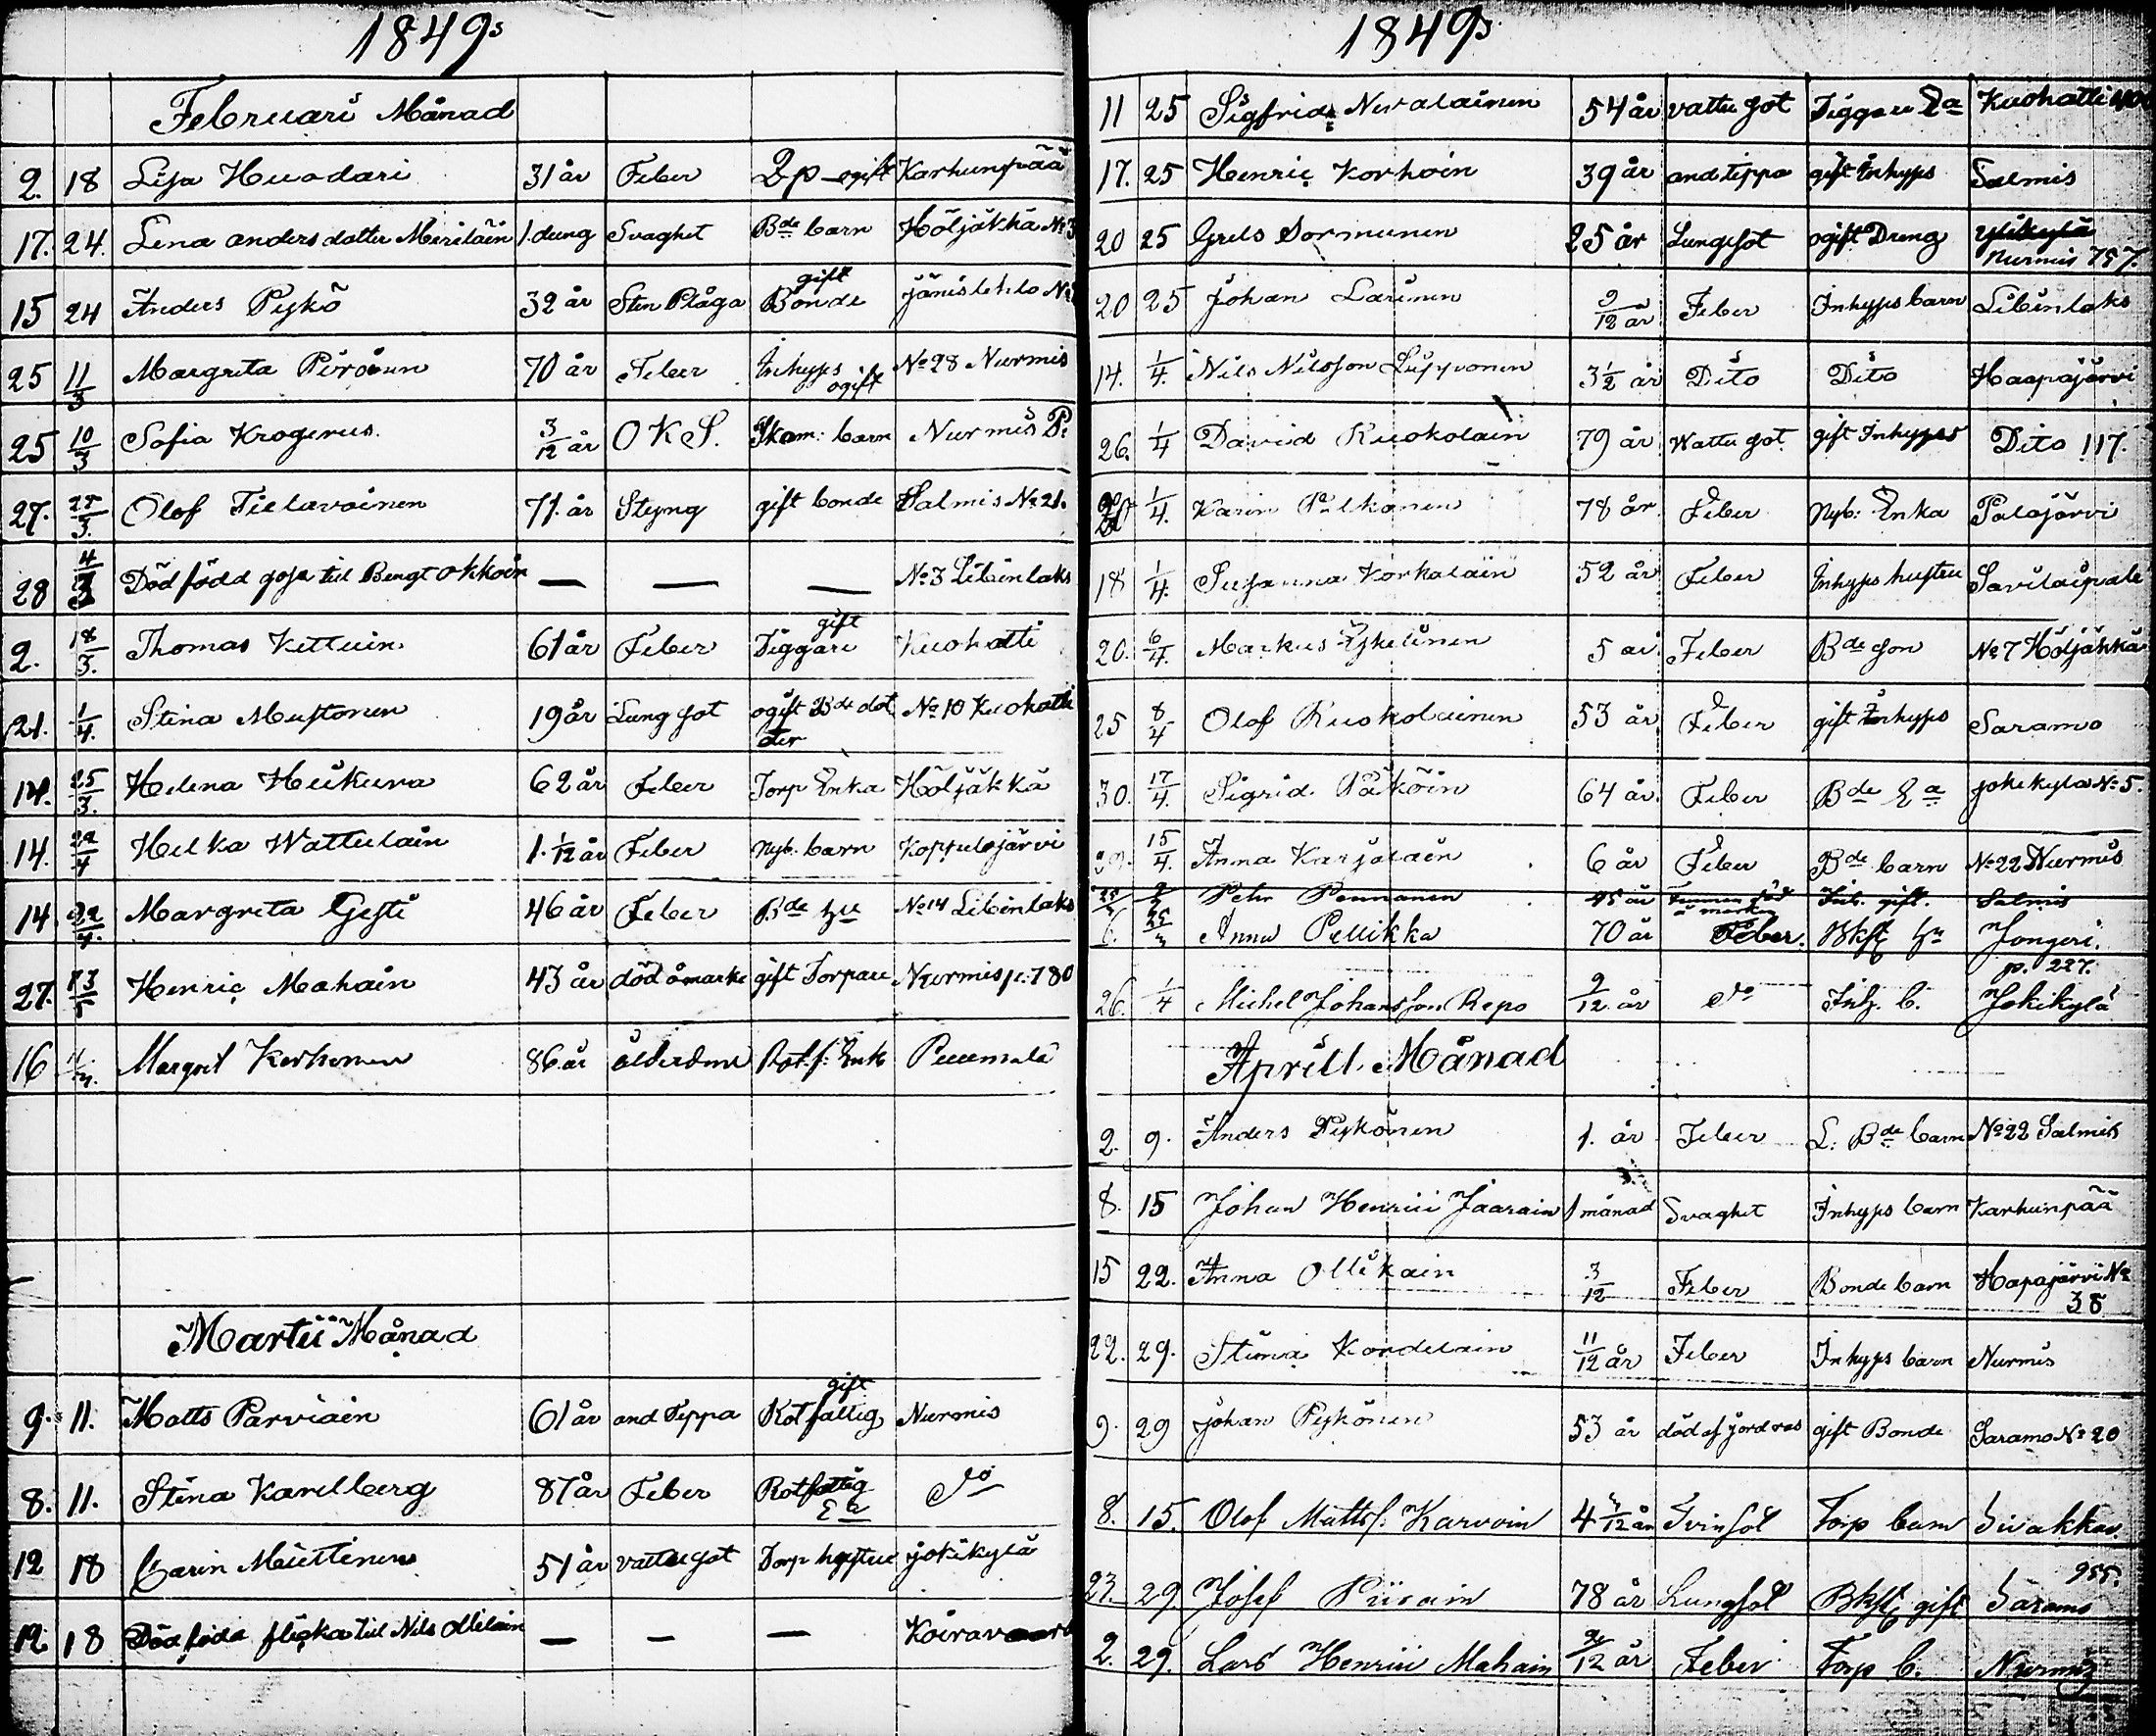 1849s
Februari Månad
2. 18 Lisa Huodari 31 år Feber Dp ogift Karhunpää
17. 24. Lena anders dotter Meriläin 1. deung Svaghet Bde barn Höljäkkä No 3
gift
15 24 Anders Pykö 32 år Sten Plåga Bonde jänislehto No
25 11/3 Margreta Piiroinen 70 år Feber Inhyps ogift No 28 Nurmis
25 10/3 Sofia Krogerus. 3/12 år O K S. Skom: barn Nurmis P:
27. 25/3. Olof Tielavainen 71. år Styng gift bonde Salmis No 21.
28 4/3 Död född gosse till Bengt Okkoin — — — No 3 Libinlaks
gift
2. 18/3. Thomas Kettuin 61 år Feber Tiggare Kuohatti
21. 1/4. Stina Mustonen 19 år Lung sot ogift Bde dot ter No 10 Kuohatti
14. 25/3. Helena Heikura 62 år Feber Torp Enka Höljäkkä
14. 22/4 Helka Wattulain 1. 1/12 år Feber Nyb. barn Koppelojärvi
14. 22/4. Margreta Gesti 46 år Feber Bde hu No 14 Libinlaks
27. 13/5 Henric Mahoin 43 år död å marke gift Torpare Nurmis p: 780
16 Margret Korhonen 86 år ålderdom Rot.f: Enk Puumala
Martii Månad
gift
9. 11. Matts Parviain 61 år and Teppa Rotfattig Nurmis
8. 11. Stina Karelberg 87 år Feber Rotfattig Ea do
12 18 Carin Miettinen 51 år vattusot Torp hustru jokikylä
12 18 Död föda flicka till Nils Ollilain — — — Koiravaara
1849s
11 25 Sigfrid Nevalainen 54 år vattu sot Tiggare Kuohatti
17. 25 Henric Korhoin 39 år and teppa gift Inhyps Salmis
20 25 Grels Sormunen 25 år Lungsot ogift Dreng ylikylä
Nurmis 757.
20 25 Johan Larinen 9/12 år Feber Inhyps barn Libinlaks
14. 1/4. Nils Nilsson Lipponen 3 1/2 år Dito Dito Haapajärvi
26. 1/4 David Ruokolain 79 år Wattu sot gift Inhyps Dito 117.
1/4. Karin Pulkonen 78 år Feber Nyb: Enka Palojärvi
18 1/4. Susanna Korkalain 52 år Feber Inhyps hustru Savilaipale
20. 6/4. Markus Eskelinen 5 år Feber Bde son No 7 Höljäkkä
25 8/4 Olof Ruokolainen 53 år Feber gift Inhyps Saramo
30. 17/4. Sigrid Päiköin 64 år Feber Bde Ea jokikylä No 5.
15/4. Anna Karjalain 6 år Feber Bde barn No 22 Nurmis
Pehr Pennanen 45 år Funnen död å marken Inh. gift. Salmis
Anna Pellikka 70 år Feber. Bkfl hu Jongeri.
p. 227.
26. 1/4 Michel Johansson Repo 9/12 år do Inh. b. Jokikylä
Aprill Månad
2. 9. Anders Pykönen 1. år Feber L: Bde barn No 22 Salmis
8. 15 Johan Henrici Jaarain 1 månad Svaghet Inhyps barn Karhunpää
15 22. Anna Ollikain 3/12 Feber Bonde barn Hapajärvi No
38
22. 29. Stina Kondelain 11/12 år Feber Inhyps barn Nurmis
9. 29 Johan Pykönen 53 år död af jord ras gift Bonde Saramo No 20
8. 15. Olof Mattsf: Karvoin 4 /12 år Tvinsot Torp barn Sivakka
955.
23. 29. Josef Piirain 78 år Lungsot Bkfl gift Saramo
2. 29. Lars Henrici Mahain /12 år Feber Torp b. Nurmis